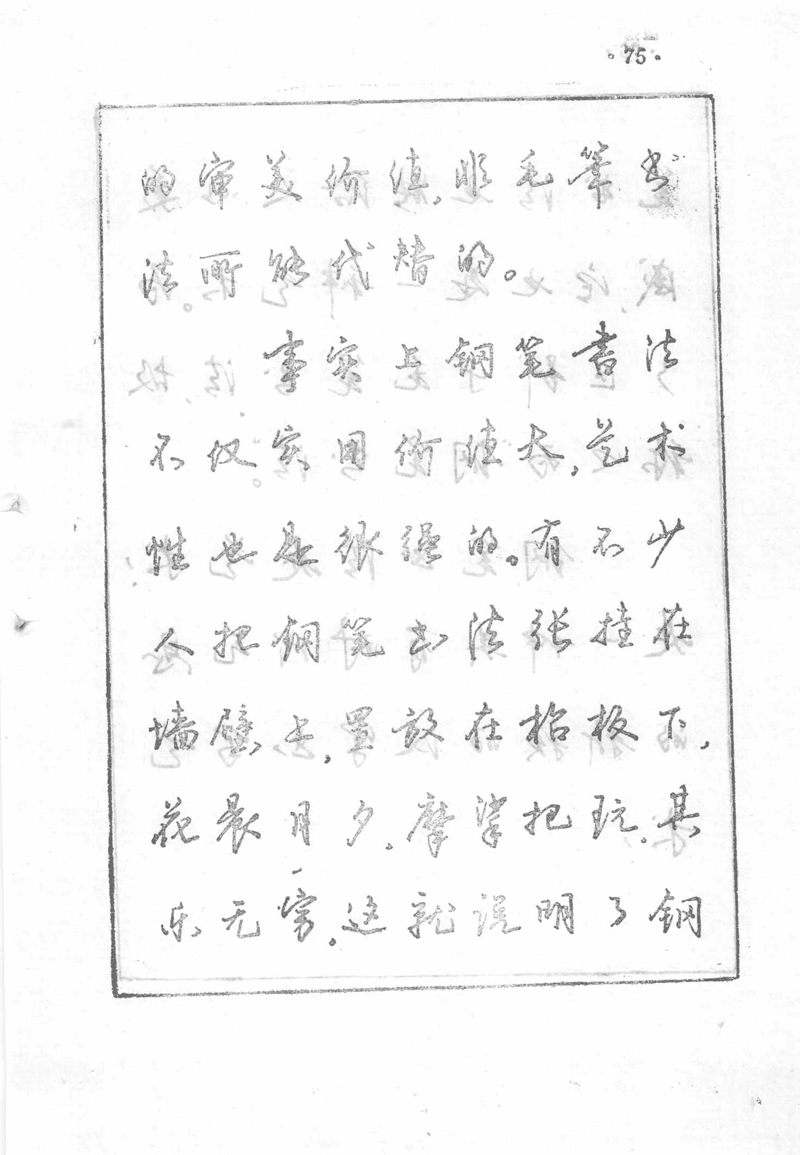 ·75·
的审美价值,非毛笔书
法所能代替的。
事实上钢笔书法
不仅实用价值大,艺术
性也是很强的。有不少
人把钢笔书法张挂在
墙壁上,置放在枱板下,
花晨月夕,摩挲把玩,其
乐无穷。这就说明了钢